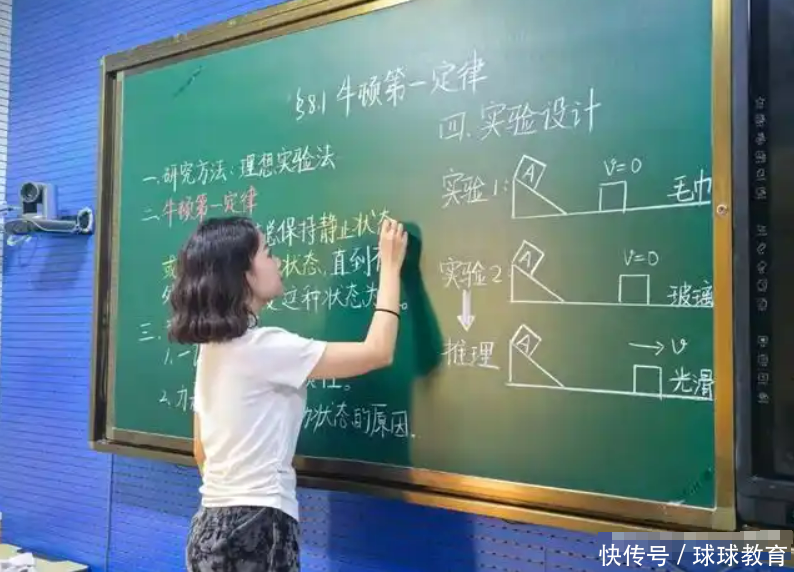 §8.1 牛顿第一定律
一.研究方法:理想实验法
二.牛顿第一定律
总保持静止状态
或 状态,直到有
外 变这种状态为 。
三.
1.一
性。
2.力
状态的原因.
四.实验设计
实验1: A v=0 毛巾
实验2 A v=0 玻璃
推理 A v 光滑
快传号 / 球球教育